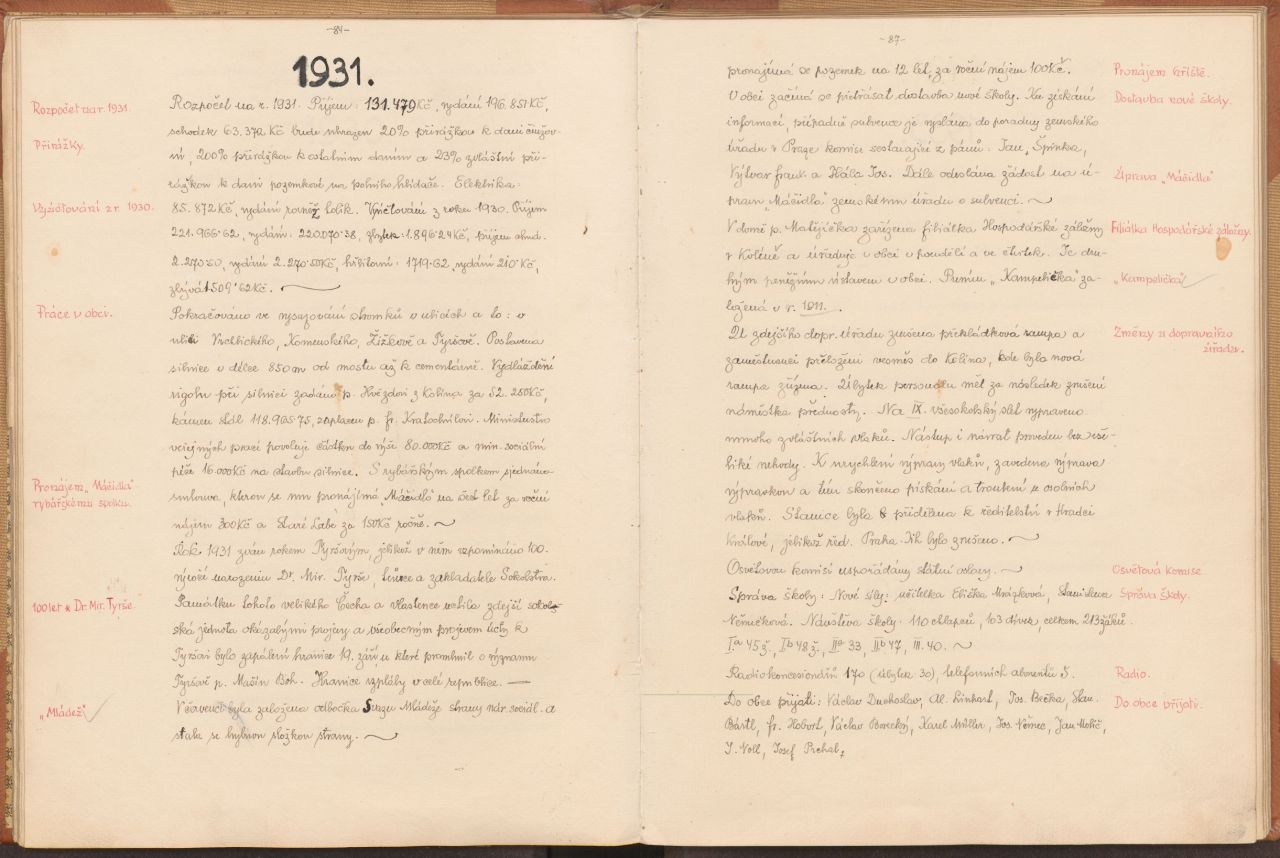 -84-
1931.
Rozpočet na r. 1931.
Rozpočet na r. 1931. Příjem: 131.479 Kč, vydání 196.851 Kč,
Přirážky.
schodek 63.372 Kč bude uhrazen 20% přirážkou k dani činžov-
ní, 200% přirážkou k ostatním daním a 23% zvláštní při-
rážkou k dani pozemkové na polního hlídače. Elektrika:
Vyúčtování z r. 1930.
85.872 Kč, vydání rovněž tolik. Vyúčtování z roku 1930. Příjem
221.966·62, vydání: 220.070·38, zbytek: 1.896·24 Kč, příjem chud.
2.270·50, vydání 2.270·50 Kč, hřbitovní: 1719·62, vydání 210 Kč,
zbývá 1.509·62 Kč.
Práce v obci.
Pokračováno ve vysazování stromků v ulicích a to: v
ulici Vrchlického, Komenského, Žižkově a Tyršově. Postavena
silnice v délce 850 m od mostu až k cementárně. Vydláždění
rigolu při silnici zadáno p. Hvězdovi z Kolína za 52.250 Kč,
kámen stál 118.965·75, zaplacen p. fr. Kratochvílovi. Ministerstvo
veřejných prací povoluje částku do výše 80.000 Kč a min. sociální
péče 16.000 Kč na stavbu silnice. S rybářským spolkem sjednána
Pronájem „Máčidla"
rybářskému spolku.
smlouva, kterou se mu pronajímá Máčidlo na šest let za roční
nájem 300 Kč a Staré Labe za 150 Kč ročně.
Rok 1931 zván rokem Tyršovým, jelikož v něm vzpomínáno 100.
výročí narození Dr. Mir. Tyrše, tvůrce a zakladatele Sokolstva.
100 let * Dr. Mir. Tyrše.
Památku tohoto velikého Čecha a vlastence uctila zdejší sokol-
ská jednota okázalými projevy a všeobecným projevem úcty k
Tyršovi bylo zapálení hranice 19. září, u které promluvil o významu
Tyršově p. Mašín Boh. Hranice vzplály v celé republice.
„Mládež"
V červenci byla založena odbočka Svazu Mládeže strany nár. sociál. a
stala se bybnou složkou strany.
-87-
pronajímá se pozemek na 12 let, za roční nájem 100 Kč.
Pronájem hřiště.
V obci začíná se přetřásat dostavba nové školy. Ku získání
Dostavba nové školy.
informací, případně subvence je vyslána do poradny zemského
úřadu v Praze komise sestávající z pánů: Jan Špinka,
Výtvar frant. a Hába Jos. Dále odeslána žádost na ú-
Úprava „Máčidla"
pravu „Máčidla" zemskému úřadu o subvenci.
V domě p. Matějíčka zařízena filiálka Hospodářské záložny
Filiálka Hospodářské záložny.
v Kolíně a úřaduje v obci v pondělí a ve čtvrtek. Je dru-
hým peněžním ústavem v obci. Prvním „Kampelička" za-
„Kampelička"
ložená v r. 1911.
U zdejšího dopr. úřadu zrušena překládková rampa a
Změny u dopravního
úřadu.
zaměstnanci přeloženi vesměs do Kolína, kde byla nová
rampa zřízena. Úbytek personálu měl za následek zrušení
náměstka přednosty. Na IX. všesokolský slet vypraveno
mnoho zvláštních vlaků. Nástup i návrat proveden bez veš-
keré nehody. K urychlení výpravy vlaků, zavedena výprava
výpravkou a tím skončeno pískání a troubení u osobních
vlaků. Stanice byla přidělena k ředitelství v Hradci
Králové, jelikož řed. Praha-Jih bylo zrušeno.
Osvětovou komisí uspořádány státní oslavy.
Osvětová komise.
Správa školy: Nové síly: učitelka Eliška Mrázková, Stanislava
Správa školy.
Němečková. Návštěva školy: 110 chlapců, 103 dívek, celkem 213 žáků.
Iª 45 ž., Iᵇ 48 ž., IIª 33, IIᵇ 47, III. 40.
Radiokoncesionářů 170 (úbytek 30), telefonních abonentů 5.
Radio.
Do obce přijati: Václav Duchoslav, Al. Linhart, Jos. Bečka, Stan.
Do obce přijati.
Bártl, fr. Hobort, Václav Borecký, Karel Müller, Jos. Němec, Jan
J. Voll, Josef Prchal,